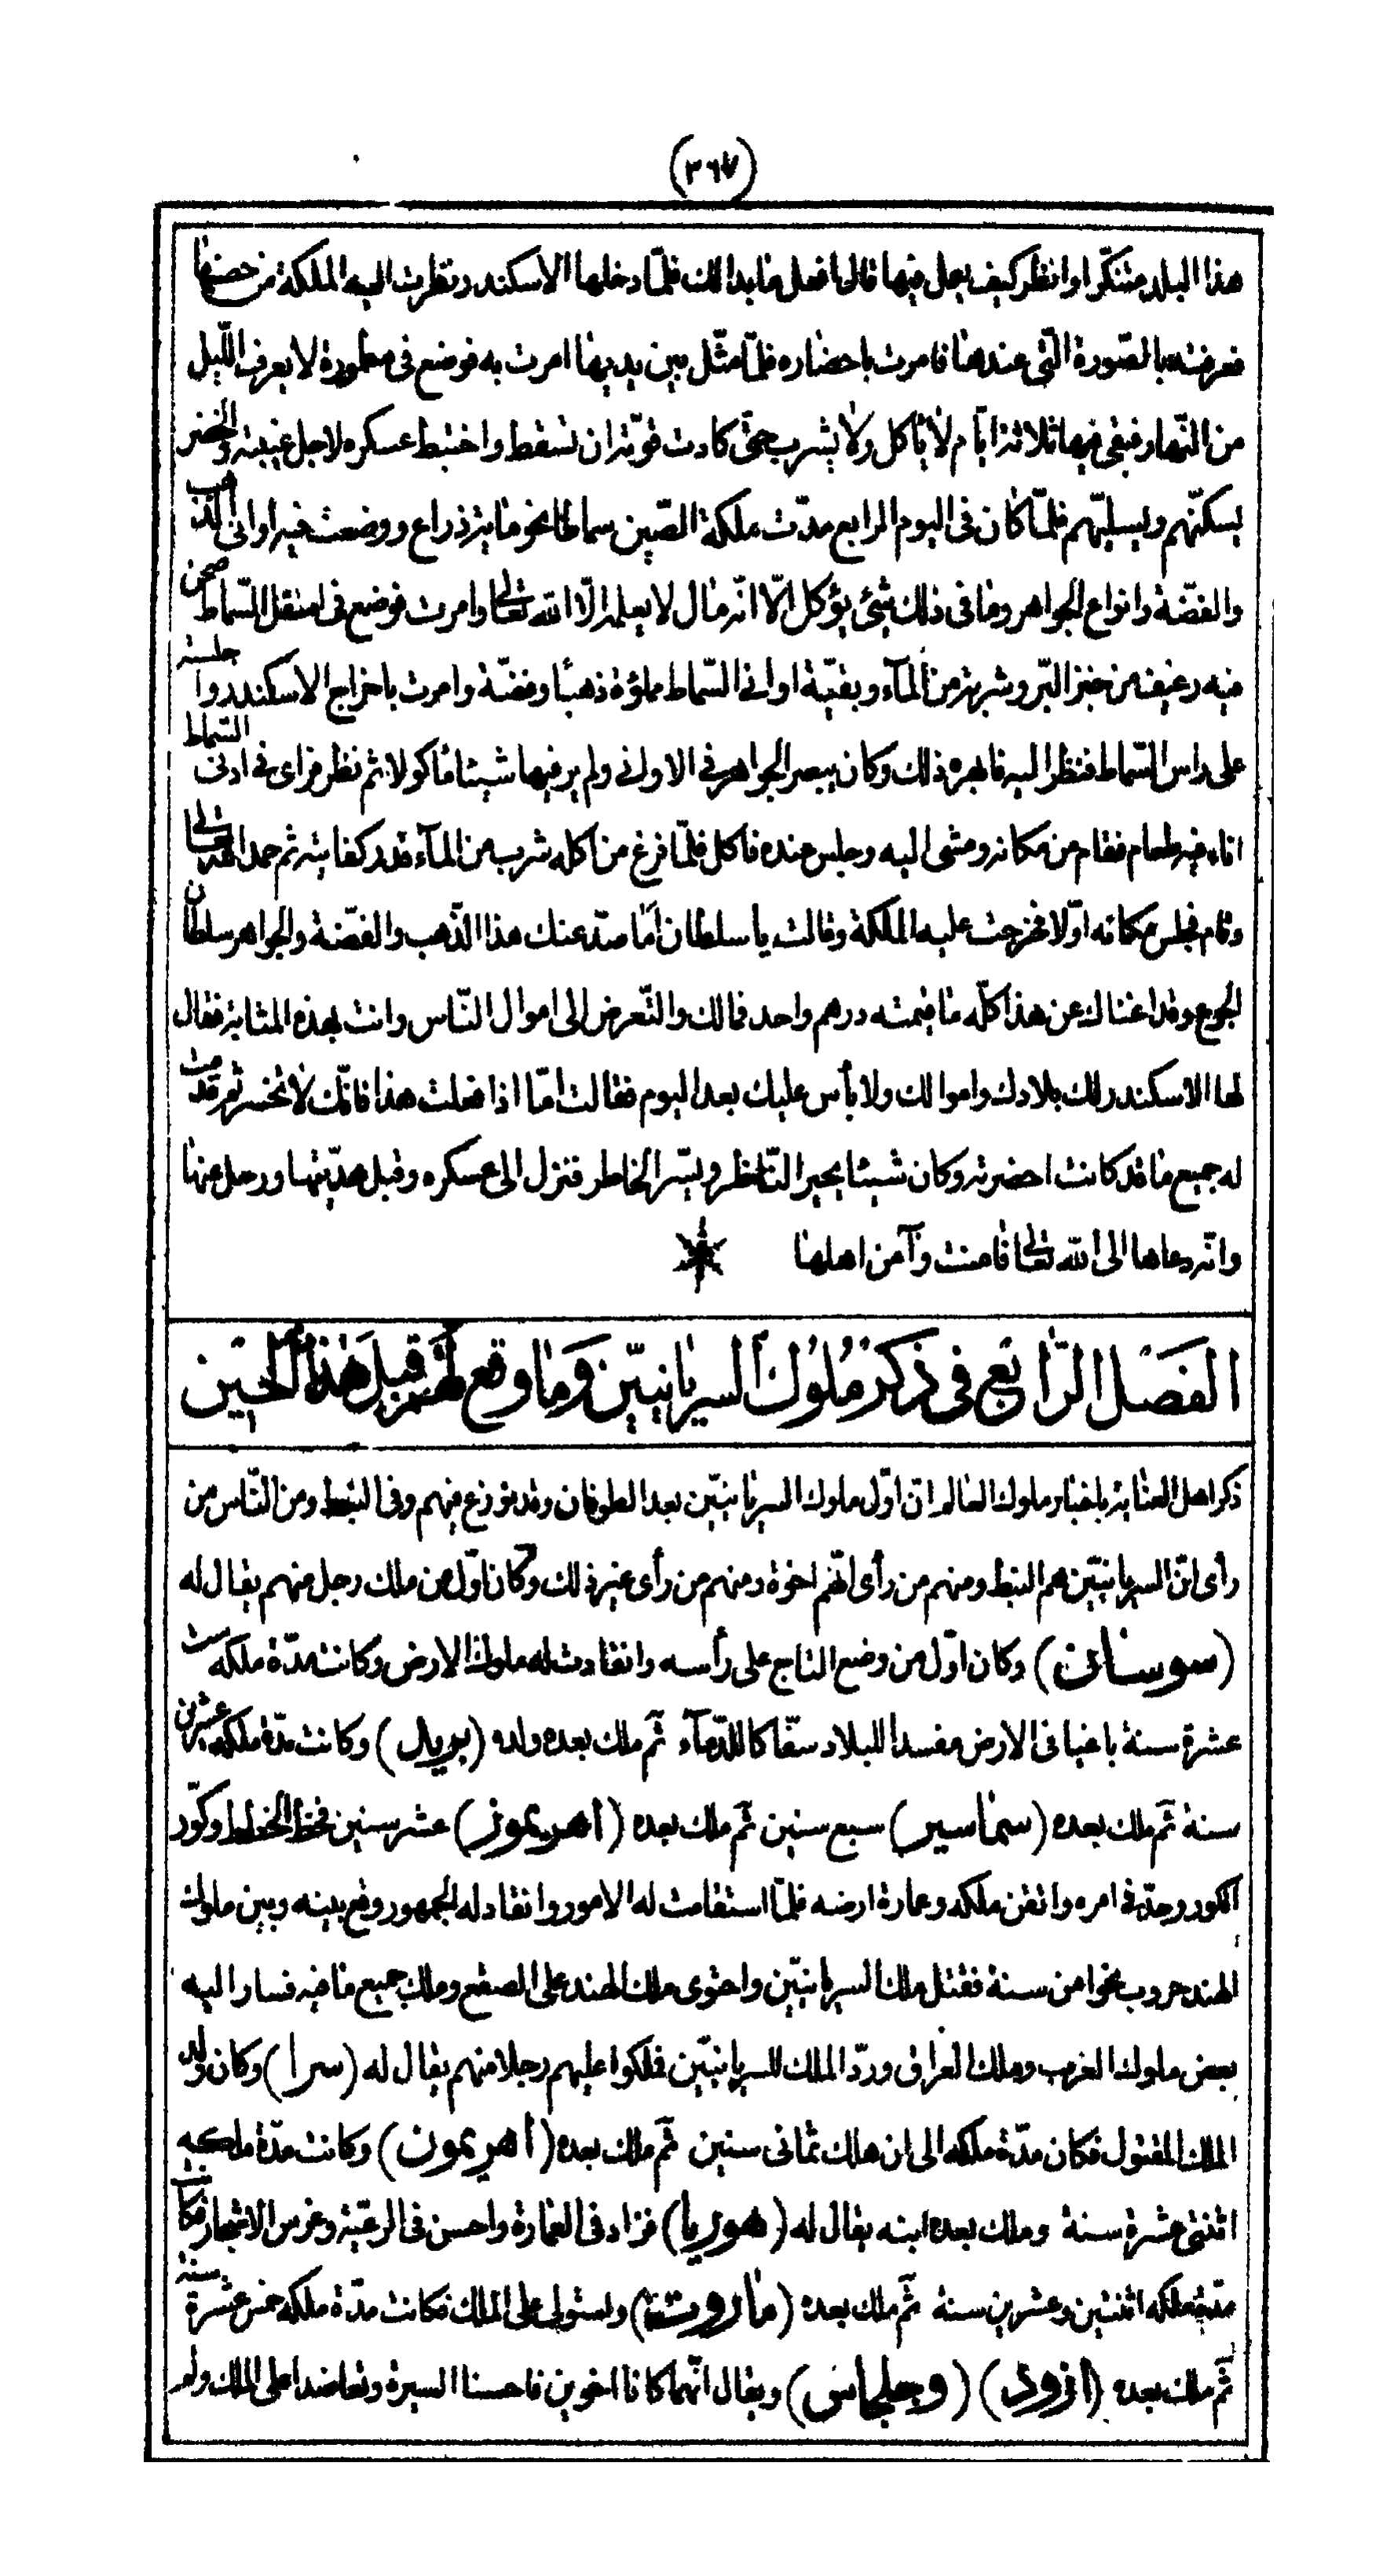 (٣٦٧)
هذا البلد متنكرا وانظر كيف يعمل فيها قال افعل ما بدا لك فلمّا دخلها الاسكندر ونظرت اليه الملكة من حصنها
فعرفته بالصّورة الّتى عندها فامرت باحضاره فلمّا مثّل بين يديها امرت به فوضع فى مطمورة لا يعرف اللّيل
من النّهار فبقى فيها ثلاثة ايّام لا يأكل ولا يشرب حتّى كادت قوّته ان تسقط واختبط عسكره لاجل غيبته والخضر
يسكّنهم ويسلّيهم فلمّا كان فى اليوم الرابع مدّت ملكة الصّين سماطا نحو ماية ذراع ووضعت فيه اوانى الذهب
والفضّة وانواع الجواهر وما فى ذلك شئ يؤكل الّا انّه مال لا يعلمه الّا الله تعالى وامرت فوضع فى اسفل السّماط صحن
فيه رغيف من خبز البرّ وشربة من المآء وبقيّة اوانى السّماط مملؤة ذهبا وفضّة وامرت باخراج الاسكندر واجلسته
على راس السّماط فنظر اليه فابهره ذلك وكان يبصر الجواهر فى الاوانى ولم ير فيها شيئا مأكولا ثم نظر فراى فى ادنى السّماط
اناء فيه طعام فقام من مكانه ومشى اليه وجلس عنده فاكل فلمّا فرغ من اكله شرب من المآء قدر كفايته ثم حمد الله تعالى
وقام فجلس مكانه اوّلا فخرجت عليه الملكة وقالت يا سلطان اما صدّ عنك هذا الذّهب والفضّة والجواهر سلطان
الجوع وقد اغناك عن هذا كلّه ما قيمته درهم واحد فمالك والتّعرض الى اموال النّاس وانت بهذه المثابة فقال
لها الاسكندر لك بلادك واموالك ولا بأس عليك بعد اليوم فقالت امّا اذا فعلت هذا فانّك لا تخسر ثم قدمت
له جميع ما قد كانت احضرته وكان شيئا يحير النّاظر ويسّر الخاطر فنزل الى عسكره وقبل هديّتها ورحل عنها
وانّه دعاها الى الله تعالى فامنت وآمن اهلها
الفصل الرّابع فى ذكر ملوك السريانيّين وما وقع لهم قبل هذا الحين
ذكر اهل العناية باخبار ملوك العالم انّ اوّل ملوك السريانيّين بعد الطوفان وقد تنوزع فيهم وفى النبط ومن النّاس من
رأى انّ السريانيّين هم النبط ومنهم من رأى انّهم اخوة ومنهم من رأى غير ذلك وكان اوّل من ملك رجل منهم يقال له
(سوسان) وكان اوّل من وضع التاج على رأسه وانقادت له ملوك الارض وكانت مدّة ملكه ست
عشرة سنة باغيا فى الارض مفسدا للبلاد سفّاكا للدّمآء ثمّ ملك بعده ولده (بريال) وكانت مدّة ملكه عشرين
سنة ثمّ ملك بعده (سماسير) سبع سنين ثمّ ملك بعده (اهريموز) عشر سنين فخط الخطط وكوّر
الكور وجدّ فى امره واتقن ملكه وعمارة ارضه فلمّا استقامت له الامور وانقاد له الجمهور وقع بينه وبين ملوك
الهند حروب نحوا من سنة فقتل ملك السريانيّين واحتوى ملك الهند على الصقع وملك جميع ما فيه فسار اليه
بعض ملوك العرب وملك العراق وردّ الملك للسريانيّين فملكوا عليهم رجلا منهم يقال له (سرا) وكان ولد
الملك المقتول فكان مدّة ملكه الى ان هلك ثمانى سنين ثمّ ملك بعده (اهريمون) وكانت مدّة ملكه
اثنتى عشرة سنة وملك بعده ابنه يقال له (هوريا) فزاد فى العمارة واحسن فى الرعيّة وغرس الاشجار فكانت
مدّة ملكه اثنتين وعشرين سنة ثمّ ملك بعده (ماروت) واستولى على الملك فكانت مدّة ملكه خمس عشرة سنة
ثمّ ملك بعده (ازود) (وجلجاس) ويقال انّهما كانا اخوين فاحسنا السيرة وتعاضدا على الملك ولم